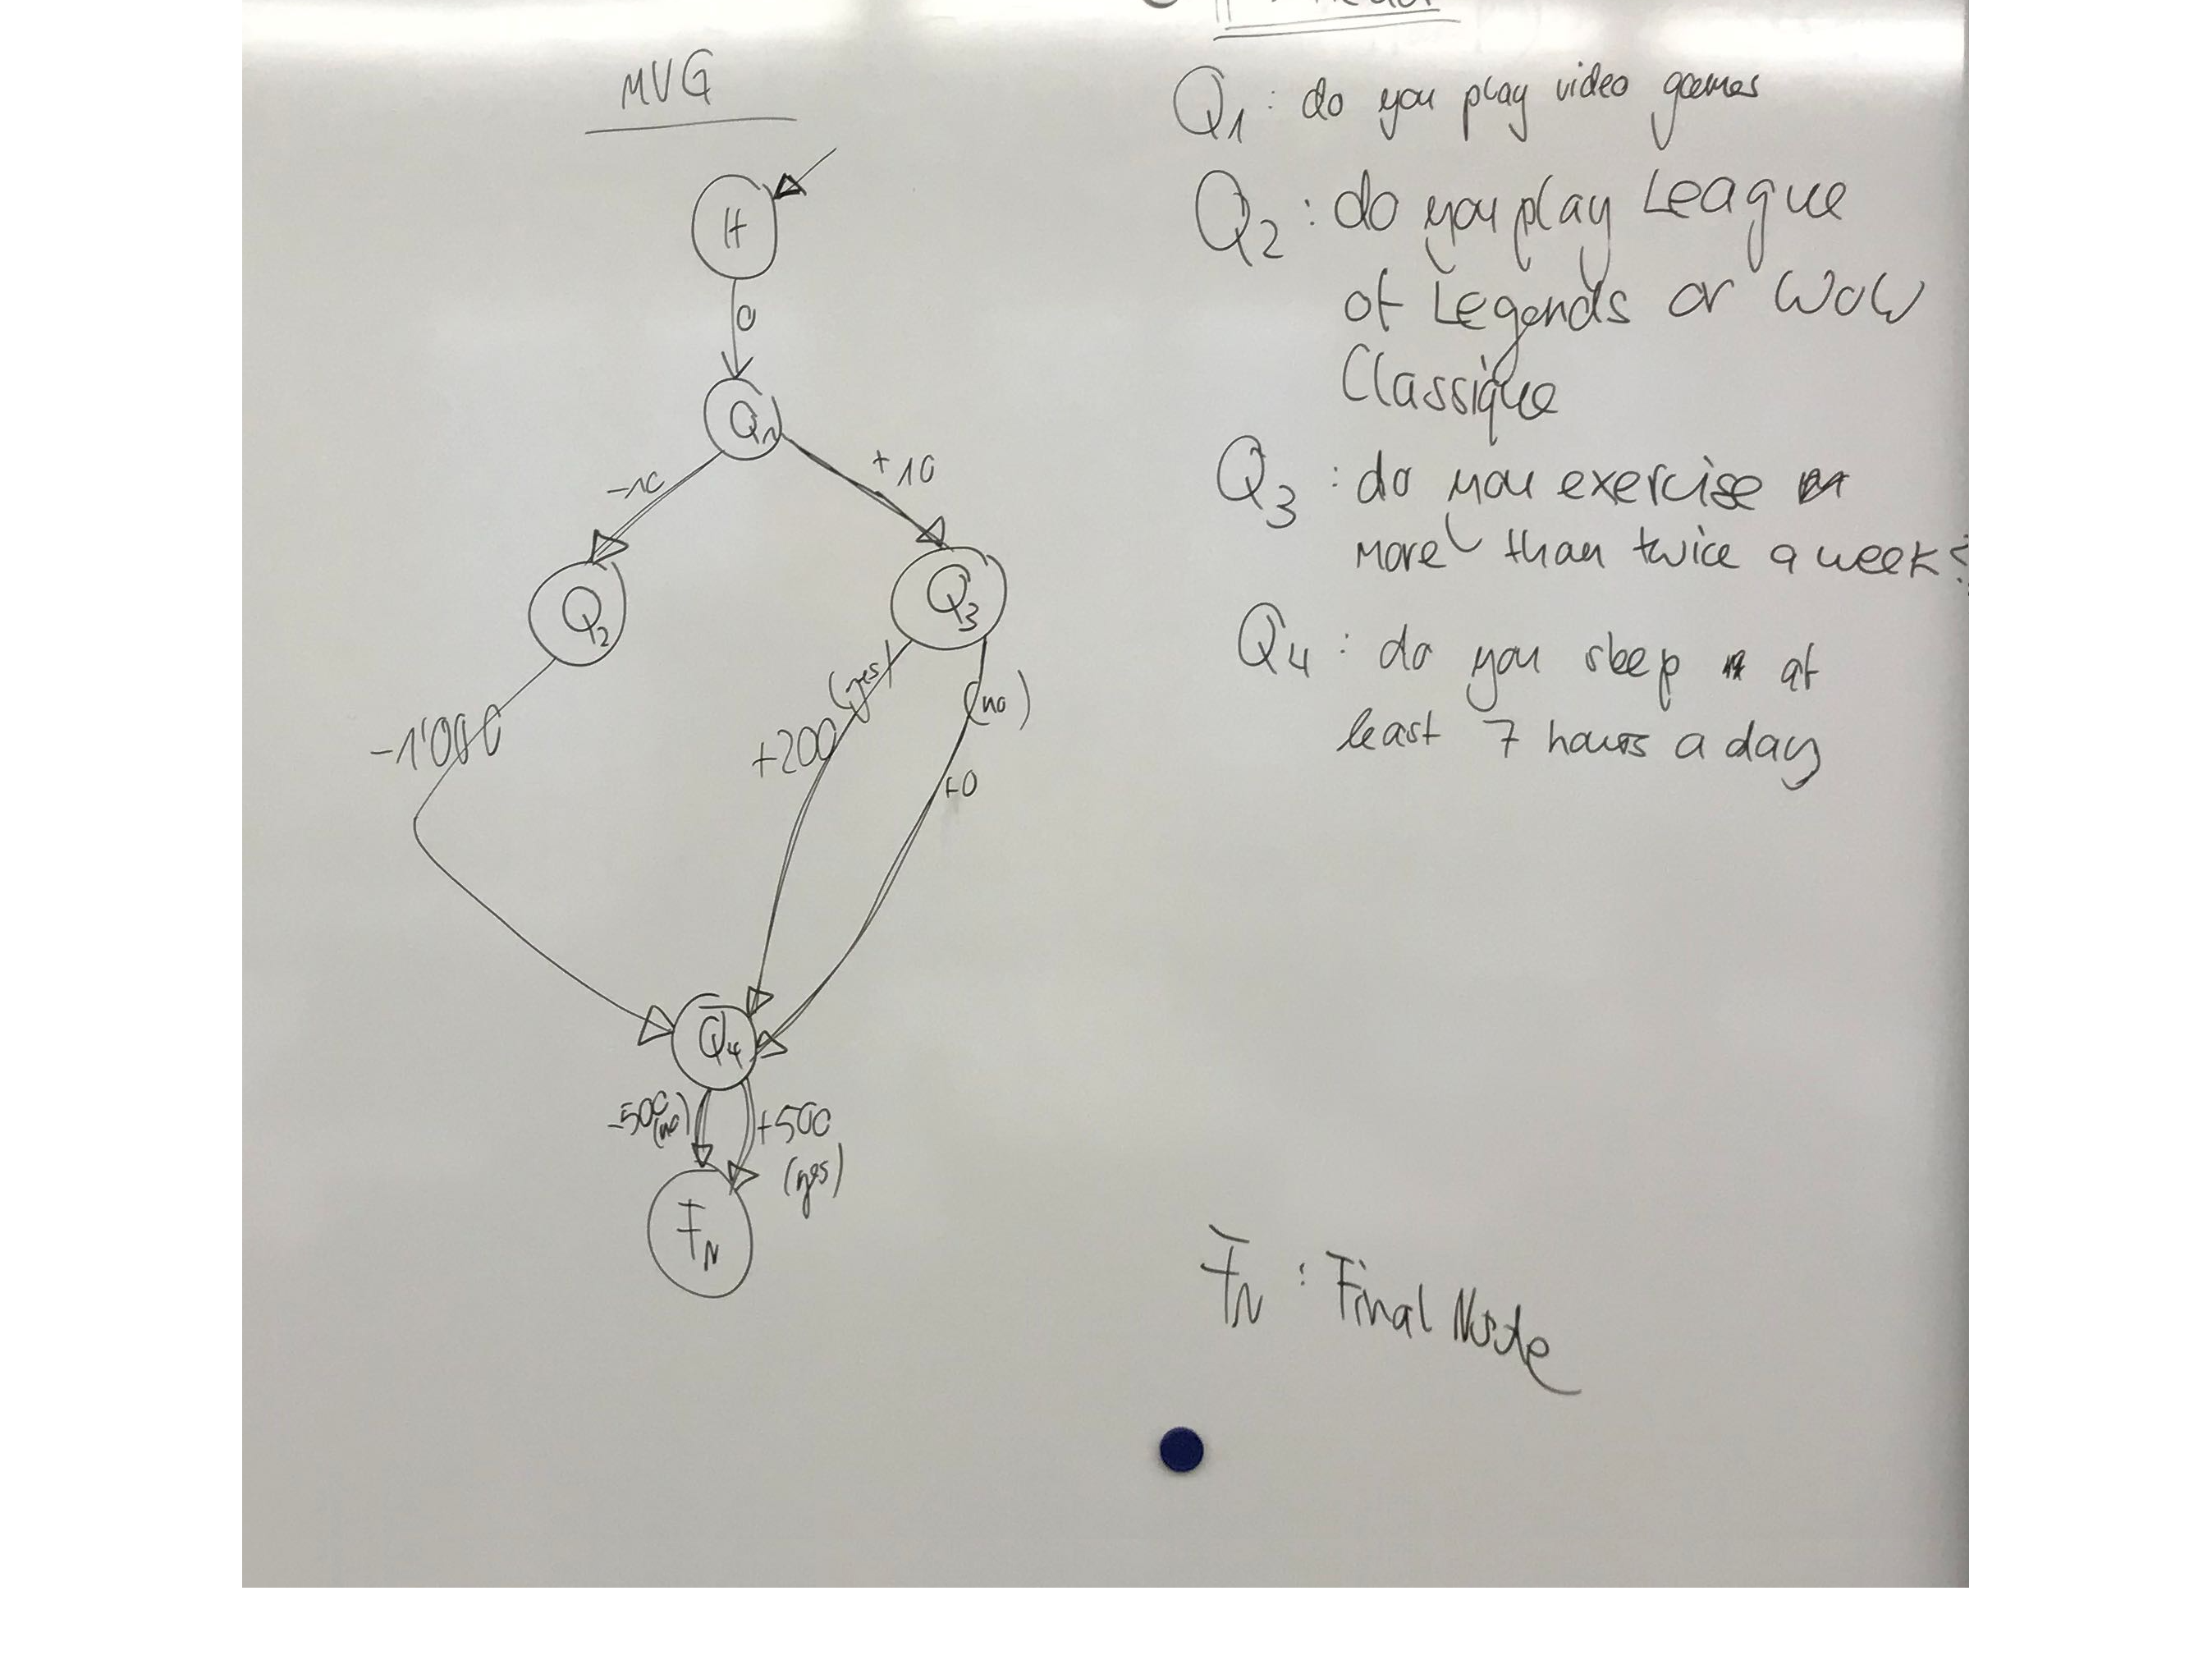 MVG
H
0
Q1
-10
+10
Q2
Q3
-1'000
(yes)
+200
(no)
+0
Q4
-500
(no)
+500
(yes)
FN
Q1: do you play video games
Q2: do you play League
of Legends or WoW
Classique
Q3: do you exercise
more than twice a week?
Q4: do you sleep at
least 7 hours a day
FN: Final Node